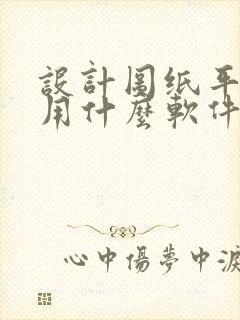 設計圖纸平
用什麼軟件
心中傷夢中淚